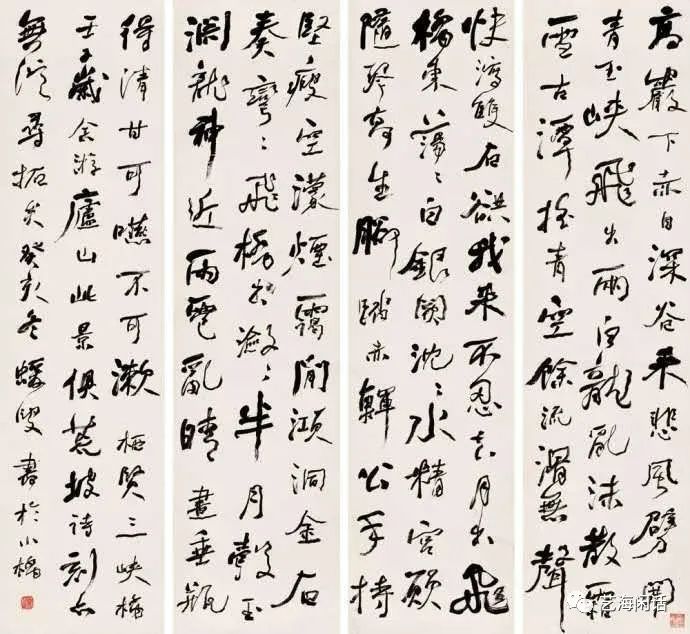 高巖下赤日深谷來悲風劈開
青玉峽飛出兩白龍亂沫散霜
雪古潭搖青空餘流滑無聲
快瀉雙石谼我來不忍去月出飛
橋東蕩〻白銀闕沈〻水精宮願
隨琴高生腳踏赤鯶公手持
堅瘦空濛煙靄間澒洞金石
奏彎〻飛橋出瀲〻半月彀玉
淵龍神近雨雹亂晴晝垂瓶
得清甘可嚥不可漱 栖賢三峽橋
壬子歲余游廬山此景俱荒坡詩刻亦
無從尋拓矣癸亥冬叟書於小
艺海闲话